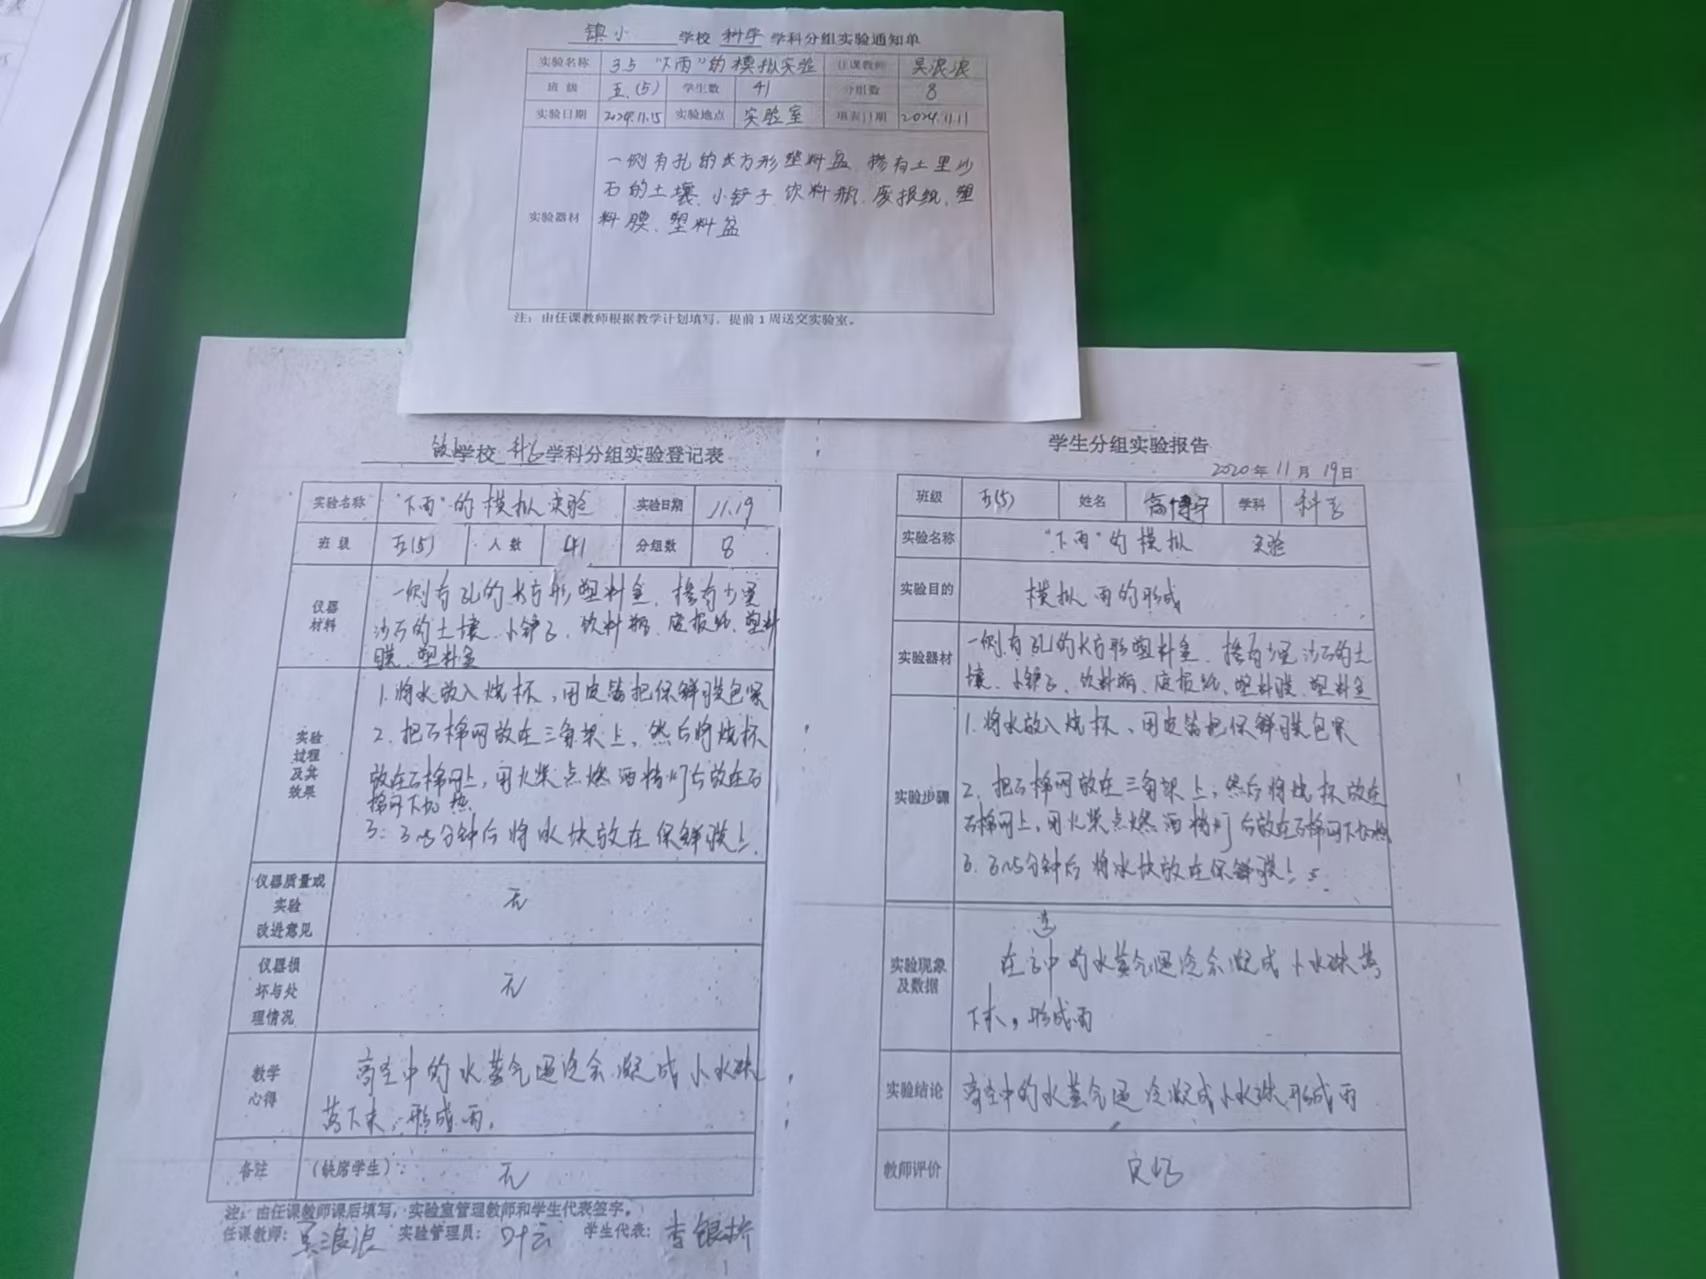 镇小 学校 科学 学科分组实验通知单
实验名称 3.5 "下雨"的模拟实验 任课教师 吴浪浪
班级 五.(5) 学生数 41 分组数 8
实验日期 2024.11.15 实验地点 实验室 填表日期 2024.11.11
实验器材
一侧有孔的长方形塑料盆、掺有土里沙
石的土壤、小铲子、饮料瓶、废报纸、塑
料膜、塑料盆
注:由任课教师根据教学计划填写,提前1周送交实验室。
学校 科学 学科分组实验登记表
实验名称 "下雨"的模拟实验 实验日期 11.19
班级 五(5) 人数 41 分组数 8
仪器
材料
一侧有孔的长方形塑料盆、掺有少量
沙石的土壤、小铲子、饮料瓶、废报纸、塑料
膜、塑料盆
实验
过程
及其
效果
1.将水放入烧杯,用皮筋把保鲜膜包紧
2.把石棉网放在三角架上,然后将烧杯
放在石棉网上,用火柴点燃酒精灯后放在石
棉网下加热
3: 3~5分钟后将冰块放在保鲜膜上.
仪器质量或
实验
改进意见
无
仪器损
坏与处
理情况
无
教学
心得
高空中的水蒸气遇冷会凝成小水珠
落下来,形成雨.
备注 (缺席学生): 无
注:由任课教师课后填写,实验室管理教师和学生代表签字。
任课教师: 吴浪浪 实验管理员: 叶云 学生代表: 李银
学生分组实验报告
2020年11月19日
班级 五(5) 姓名 高博宇 学科 科学
实验名称 "下雨"的模拟 实验
实验目的 模拟雨的形成
实验器材
一侧有孔的长方形塑料盆、掺有少量沙石的土
壤、小铲子、饮料瓶、废报纸、塑料膜、塑料盆
实验步骤
1.将水放入烧杯、用皮筋把保鲜膜包紧
2.把石棉网放在三角架上,然后将烧杯放在
石棉网上,用火柴点燃酒精灯后放在石棉网下加热
3.3~5分钟后将冰块放在保鲜膜上.
实验现象
及数据
在空中的水蒸气遇冷会凝成小水珠落
下来,形成雨
实验结论 高空中的水蒸气遇冷凝成小水珠形成雨
教师评价 良好